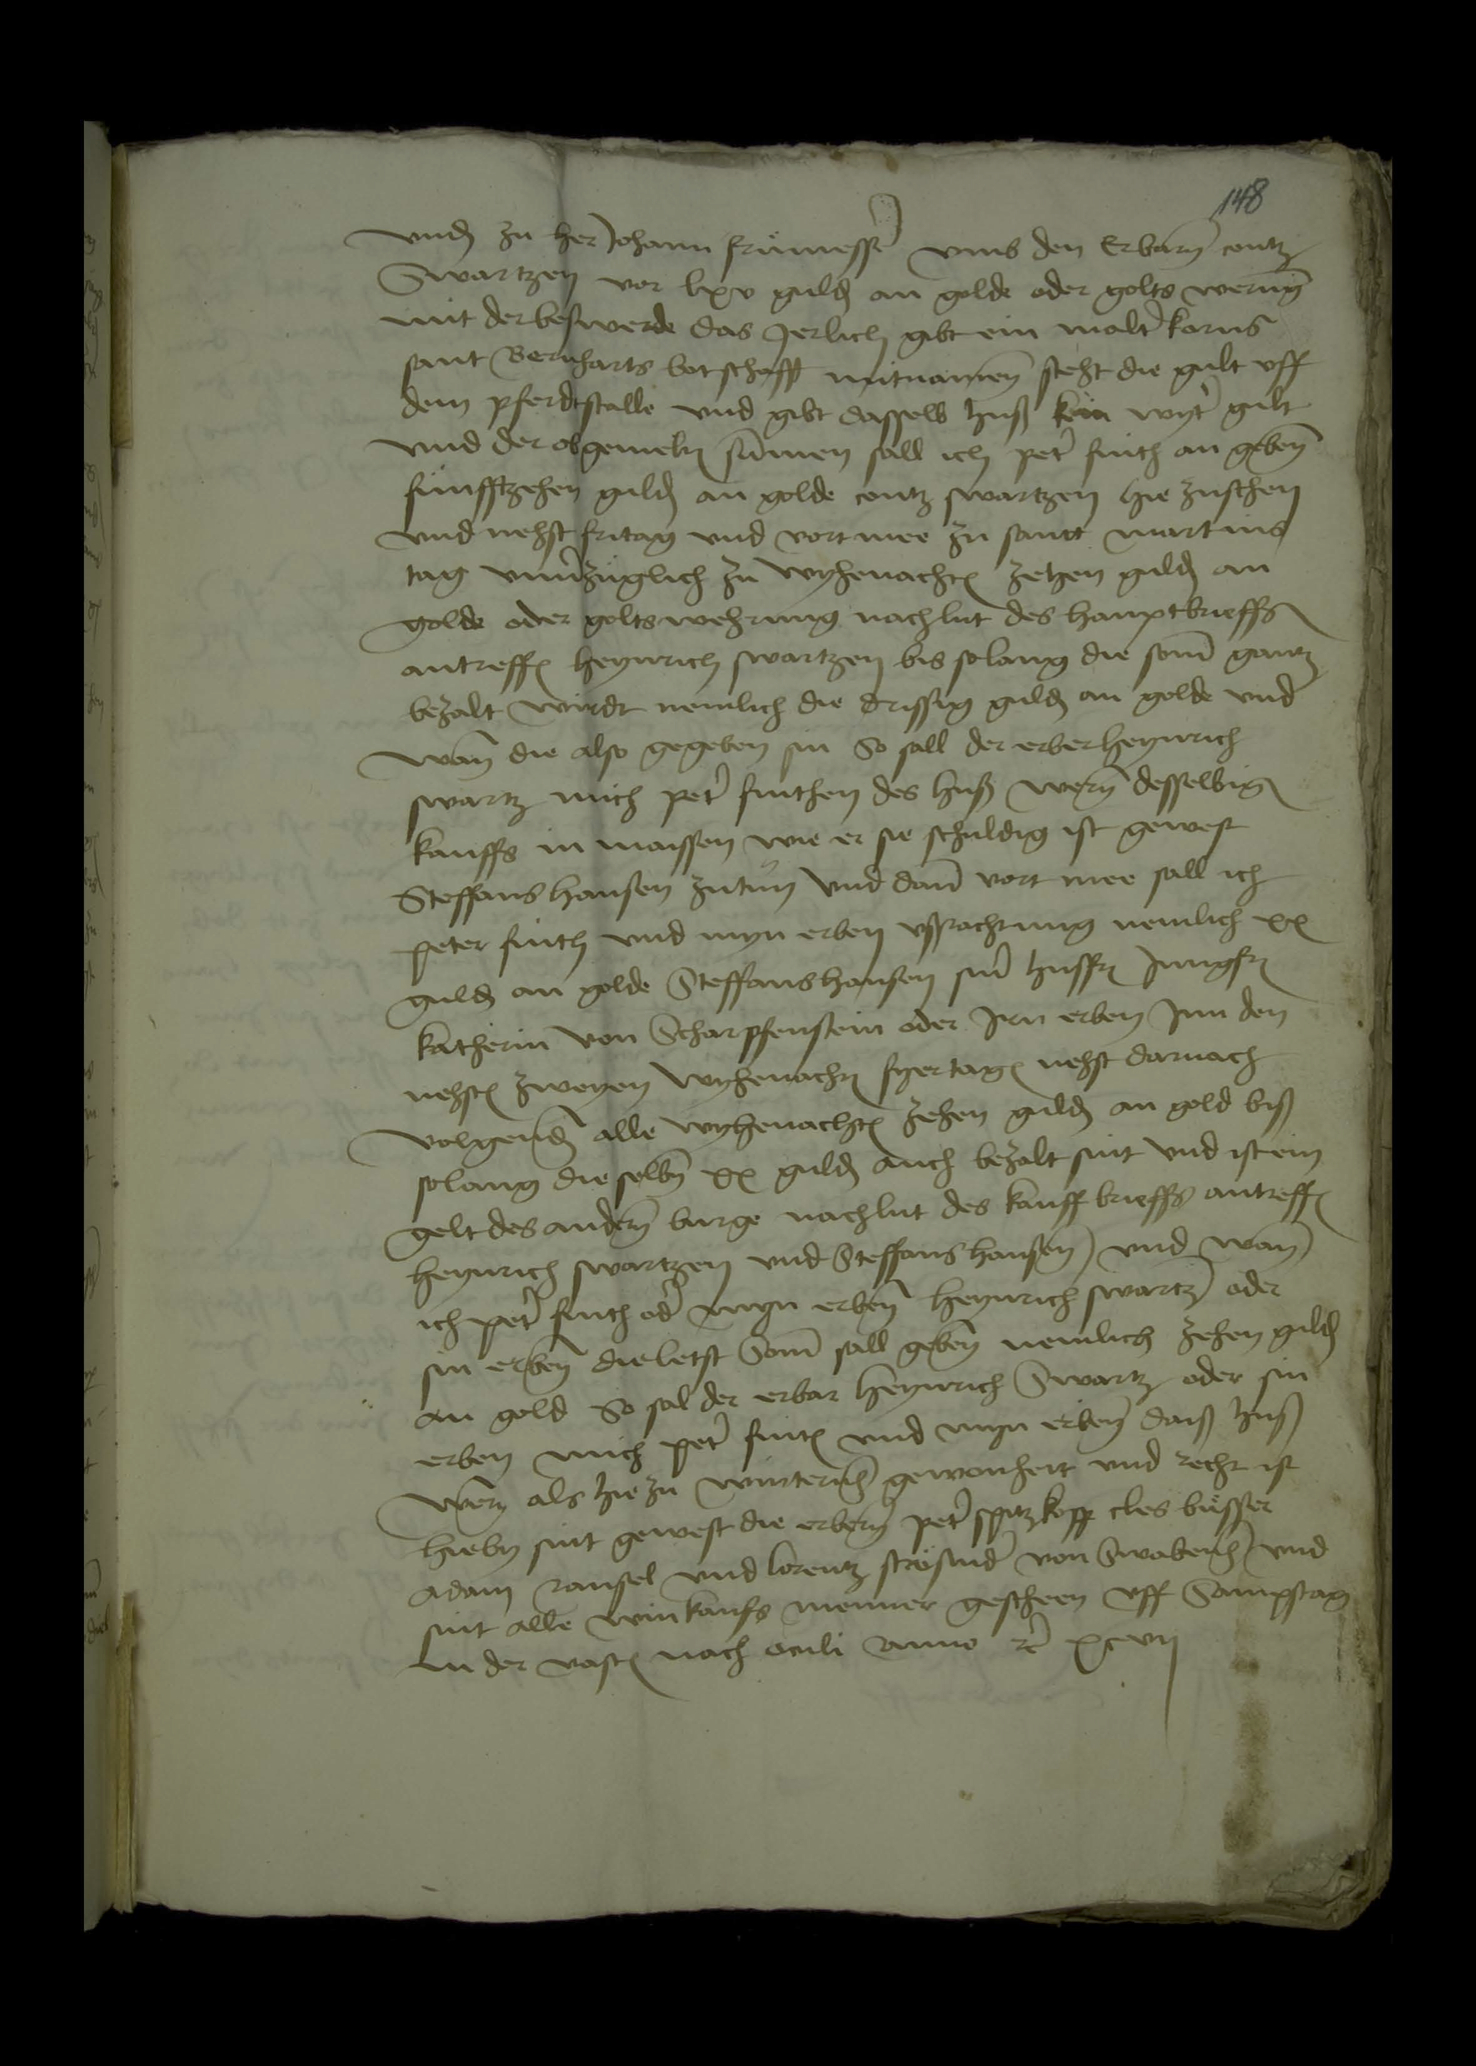 148
unden zu her Johann frümesser umb den Erbarn contz
Swartzen vor lxv guld an golde oder golts werung
mit der beswerde das Jerlich gibt ein malter korns
sant Bernharts botschafft mitnamen steht die gult uff
dem pferdtstalle und gibt dasselb huß kein wyter gult
und der obgemelten summen sall ich peter finth an geben
fünfftzehen guld an golde contz swartzen hie zuschen
und nehst fritag und vort mee zu sanct martins
tag unverzüglich zu wyhenachten zehen guld an
golde oder golts wehrung nach lut des hauptbrieffs
antreffen heynrich swartzen bis solang die som gantz
bezalt wirdt nemlich die drissig guld an golde und
wan die also gegeben sin So sall der erber heynrich
swartz mich peter finthen des huß wern desselbigen
kauffs in maissen wie er sie schuldig ist gewest
Steffans hansen zutun und dan vort mee sall ich
peter finth und myn erben ußrachtung nemlich xx
guld an golde Steffans hansen siner hussfrauen Jungfrauen
katherin von Scharpfenstein oder Jrn erben Jnn den
nehsten zweyen wyhenachten fyertagen nehst darnach
volgend alle wyhenachten zehen guld an gold biß
solang die selben xx guld auch bezalt sint und ist ein
gelt des andern burge nach lut des kauff brieffs antreffen
heynrich swartzen und Steffans hansen und wan
ich peter finth oder myn erben heynrich swartz oder
sin erben die letst Som sall geben nemlich zehen guld
an gold So sal der erbar heynrich Swartz oder sin
erben mich peter finten und myn erben daiß huß
wern als hie zu winterheim gewonheit und recht ist
hieby sint gewest die erbern peter spitzkopp cles büsser
adam ransel und lorentz von Swabenheim und
sint alle winkaufs menner gescheen uff Sampstag
in der vasten nach oculi anno etc xcvij